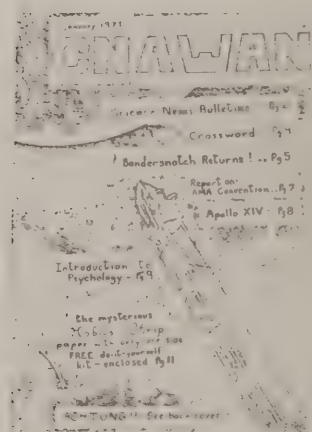 January 1971
Science News Bulletins Pg 2
Crossword Pg 4
Bandersnatch Returns! .. Pg 5
Report on
AMA Convention.. Pg 7
Apollo XIV - Pg 8
Introduction to
Psychology - Pg 9
the mysterious
Mobius Strip
paper with only one side
FREE do-it-yourself
kit - enclosed Pg 11
ACHTUNG!! See back cover